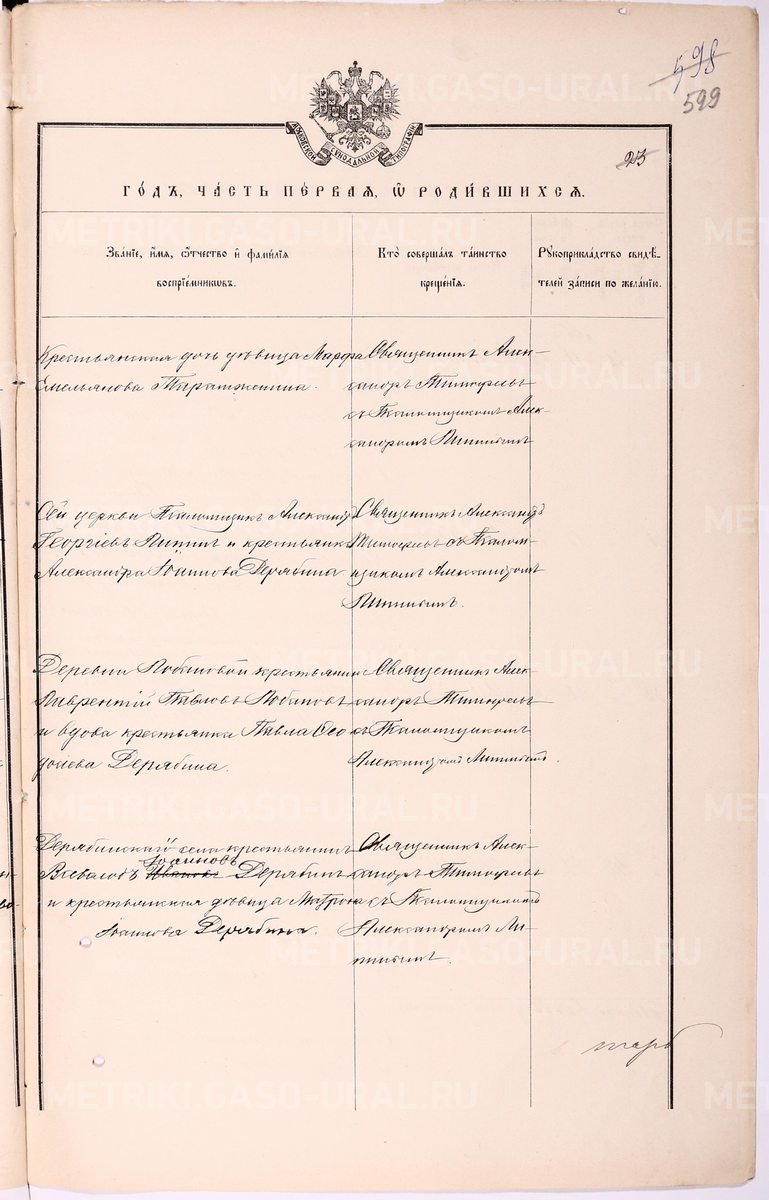 598
599
МОСКОВСКОЙ СУНОДАЛЬНОЙ ТИПОГРАФІИ
23
ГО́ДЪ, ЧА́СТЬ ПЕ́РВАЯ, Ѽ РОДИ́ВШИХСЯ.
Зва́ніе, и́мя, о́тчество и фами́лія
воспріе́мниковъ.
Кто̀ соверша́лъ та́инство
креще́нія.
Рукоприкла́дство свидѣ́-
телей за́писи по жела́нію.
Крестьянская дочь дѣвица Марфа
Емельянова
Священникъ Алек-
сандръ Тимофеевъ
съ Псаломщикомъ Алек-
сандромъ
Сей церкви Псаломщикъ Александръ
Георгіевъ и крестьянка
Александра Іоаннова Дерябина
Священникъ Александръ
Тимофеевъ съ Псалом-
щикомъ Александромъ
Деревни Лобановой крестьянинъ
Лаврентій Павловъ Лобановъ
и вдова крестьянка Павла Ѳео-
дорова Дерябина.
Священникъ Алек-
сандръ Тимофеевъ
съ Псаломщикомъ
Александромъ
Дерябинскаго села крестьянинъ
Іоанновъ
Всеволодъ Ивановъ Дерябинъ
и крестьянская дѣвица Матрона
Іоаннова Дерябина.
Священникъ Алек-
сандръ Тимофеевъ
съ Псаломщикомъ
Александромъ
METRIKI.GASO-URAL.RU